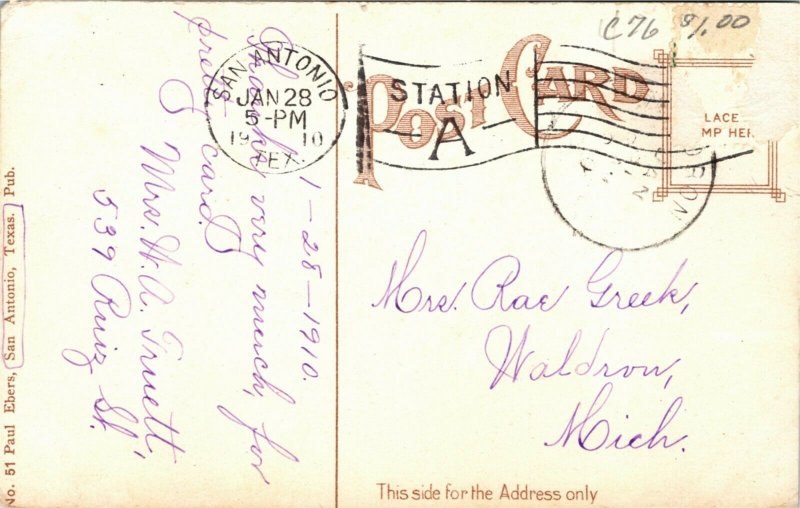 C76 $1.00
POST CARD
SAN ANTONIO
JAN 28
5-PM
19 10
TEX.
STATION
A
LACE
MP HER
DRON
1-28-1910.
Thanks very much, for
pretty card.
Mrs. W. A. Truett,
539 Ruiz St.
Mrs. Rae Greek,
Waldron,
Mich.
This side for the Address only
No. 51 Paul Ebers, San Antonio, Texas. Pub.